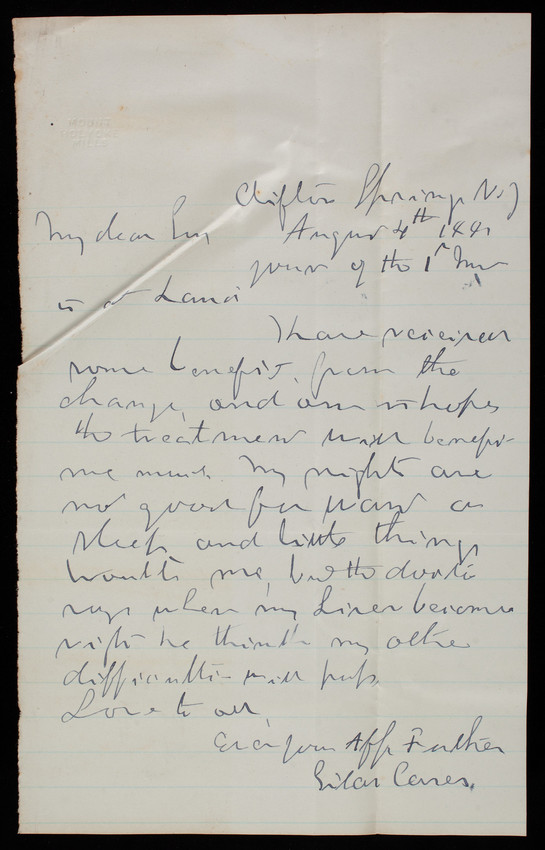 Clifton Springs N.Y
My dear Guy August 4th 1891
yours of the 1st Inst
is at hand
I have received
some benefit, from the
change, and am in hopes
the treatment will benefit
me much. My nights are
not good for want of
sleep and little things
trouble me, but the doctor
says when my Liver becomes
right he thinks my other
difficulties will pass
Love to all,
Ever your Aff Father
Silas Casey.